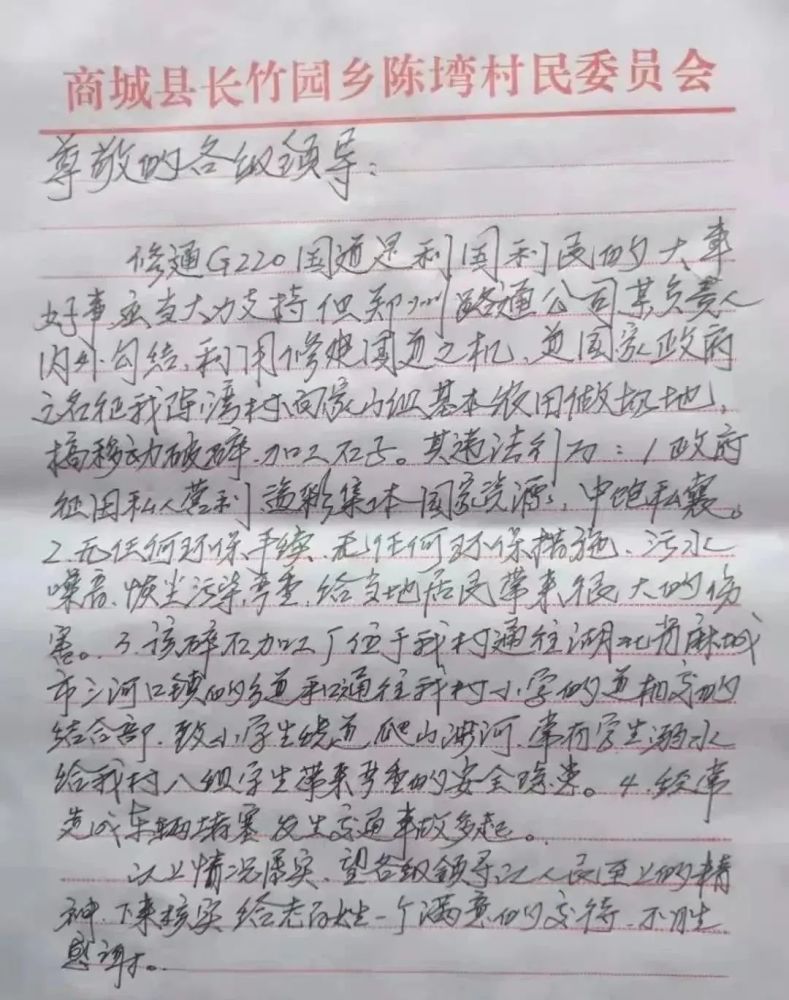 商城县长竹园乡陈塆村民委员会
尊敬的各级领导：
修通G220国道是利国利民的大事
好事应当大力支持但郑州路通公司某负责人
内外勾结、利用修建国道之机、道国家政府
之名征我陈湾村向家山组基本农田做场地，
搞移动破碎.加工石子。其违法行为：1政府
征田私人营利盗彩集体国家资源、中饱私襄。
2.无任何环保手续.无任何环保措施、污水
噪音、恢尘污染严重.给当地居民带来很大的伤
害。3.该碎石加工厂位于我村通往湖北省麻城
市三河口镇的乡道和通往我村小学的道相交的
结合部.致小学生绕道、爬山涉河.常有学生溺水
给我村八组学生带来严重的安全隐患。4.经常
造成车辆堵塞发生交通事故多起。
以上情况属实、望各级领导以人民至上的精
神.下来核实给老百姓一个满意的交待.不胜
感谢。